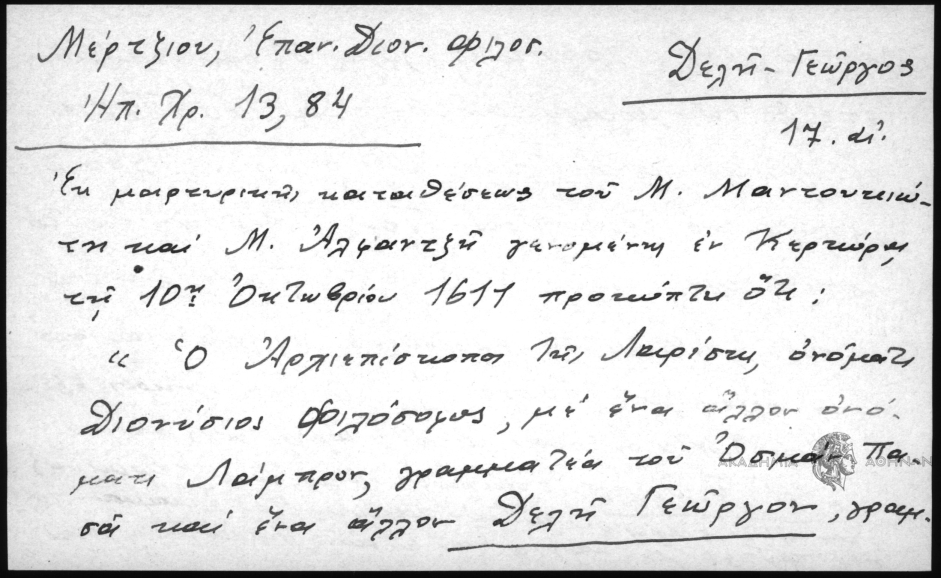 Μέρτζιου, Ἐπαν. Διον. Φιλοσ.
Δελῆ-Γεῶργος
Ἠπ. Χρ. 13, 84
17. αἰ.
Ἐκ μαρτυρικῆς καταθέσεως τοῦ Μ. Μαντουκιώ-
τη καί Μ. Ἀλφαντζῆ γενομένης ἐν Κερκύρᾳ
τῇ 10ῃ Ὀκτωβρίου 1611 προκύπτει ὅτι:
« Ὁ Ἀρχιεπίσκοπος τῆς Λαρίσης, ὀνόματι
Διονύσιος Φιλόσοφος, μέ ἕνα ἄλλον ὀνό-
ματι Λάμπρον, γραμματέα τοῦ Ὀσμάν Πα-
ΑΚΑΔΗΜΙΑ ΑΘΗΝΩΝ
σᾶ καί ἕνα ἄλλον Δελῆ Γεῶργον, γραμ-